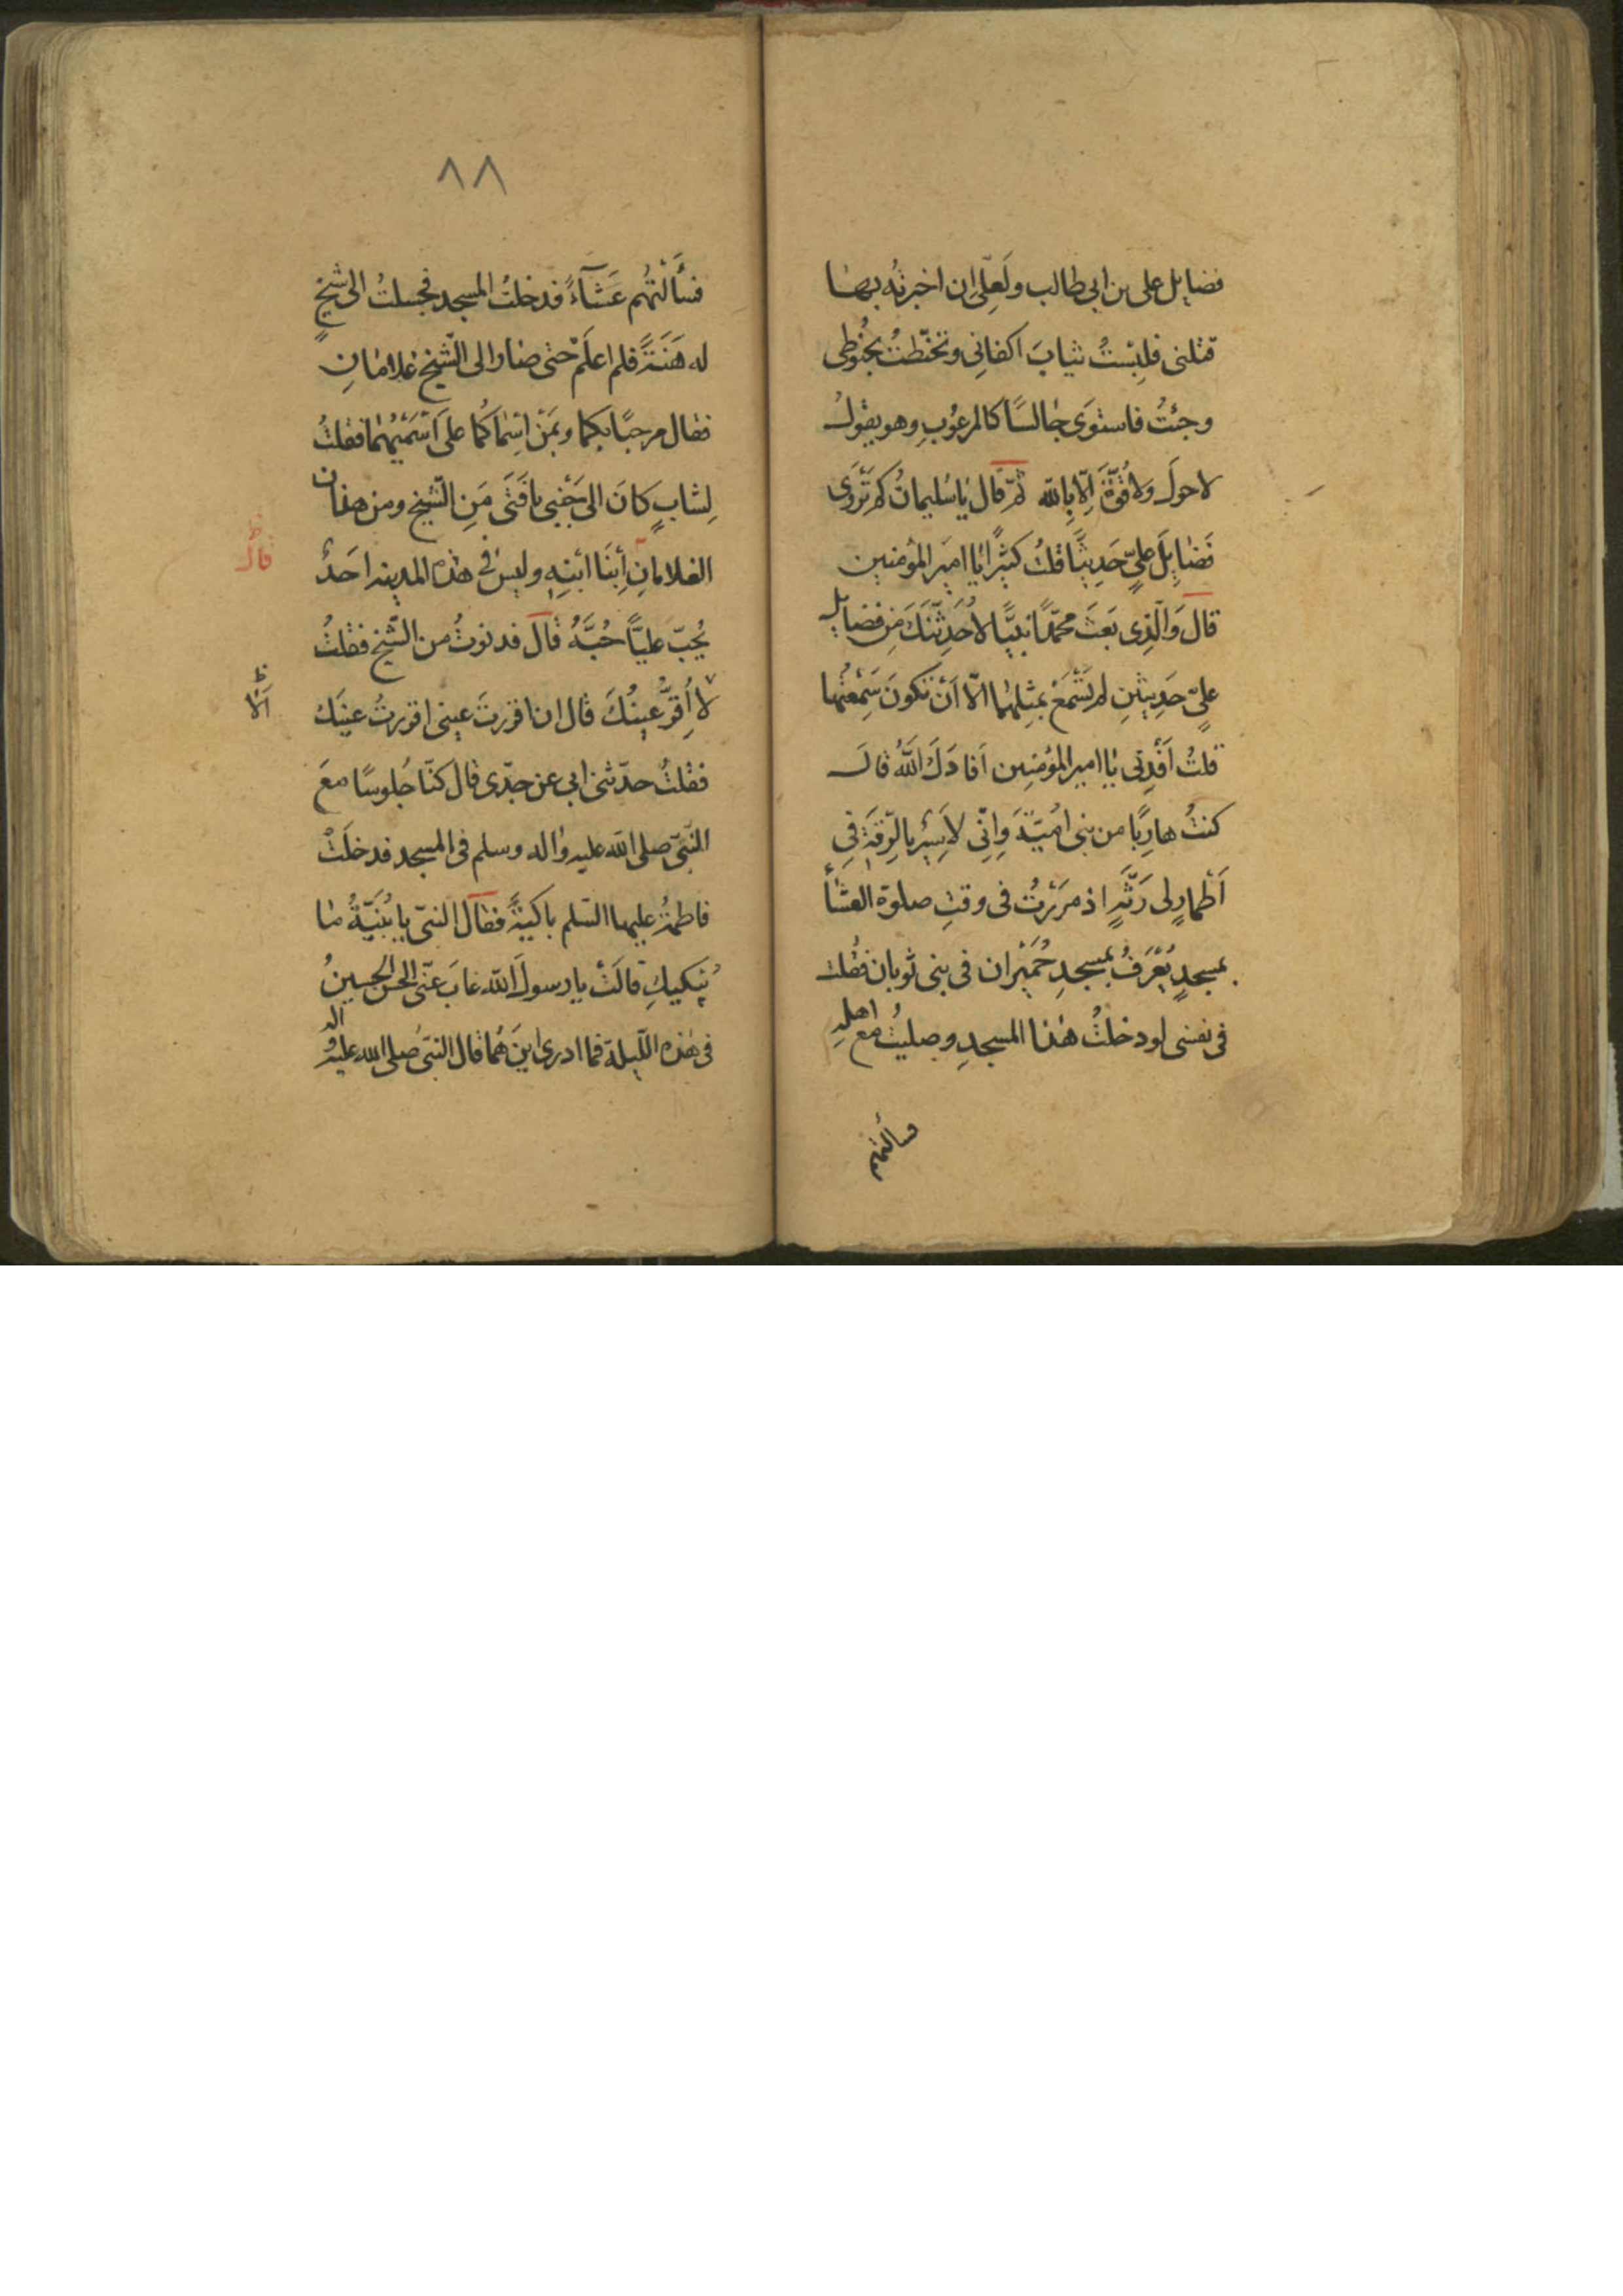 فضايل على بن ابى طالب ولَعلّى ان اخبرته بها
قتلنى فلبِسْتُ ثيابَ اكفانِى وتحنّطتُ بحُنُوطى
وجئتُ فاستوَى جالسًا كالمرعُوبِ وهو يقولُ
لاحولَ ولا قُوّةَ اِلّا بِاللّه ثمّ قال يا سُليمانُ كم تَرْوِى
فَضايِلَ علىٍّ حَدِيثًا قلتُ كثيرًا يا اميرَ المؤمنين
قالَ وَالّذِى بَعَثَ محمّدًا نبيًّا لاُحَدِثّنَكَ مِن فضايل
علىٍّ حَدِيثينِ لم تَسْمَعْ بمثلِهما الّا اَنْ تكونَ سَمِعْتَهما
قلتُ اَفْدِنى يا امير المؤمنِين اَفادَكَ اللّهُ قالَ
كنتُ هارِبًا من بنى اميّةَ وَاِنّى لاَسِيْرُ بالرّقةِ فى
اَطْمارٍ لى رَثَّةٍ اذ مرَرْتُ فى وقتِ صلوة العشاء
بمسجدٍ يُعْرَفُ بمسجدِ حُمَيْران فى بنى ثوبان فقُلت
فى نفسى لو دخلتُ هذا المسجدِ وصليتُ مع اهلِه
فسألتهم
٨٨
فسَأَلْتُهُم عَشَآءً فدخلتُ المسجد فجلستُ الى شيخٍ
له هَنَةٌ فلم اعلَمْ حتى صارا الى الشّيخ غلامانِ
فقال مرحبًا بكما وبمَنْ اسْماكُما على اَسْمَيْهما فقلتُ
لِشابٍ كانَ الى جَنْبى يا فَتَى مَنِ الشّيخ ومن هذان
الغلامانِ اَبْنا ابْنِهِ وليسَ فى هذه المدينه احَدٌ
قال
يُحِبّ عليًّا حُبَّهُ قالَ فدنوتُ من الشّيخ فقلتُ
لا اُقرُّ عينُكَ قال ان اقررتَ عينى اقررتُ عينَك
اَلا
فقلتُ حدّثنى ابى عن جدّى قال كنّا جُلوسًا معَ
النّبىّ صلى اللّه عليه واله وسلم فى المسجد فدخلَتْ
فاطمةُ عليها السّلم باكيةً فقال النبىّ يا بُنَيّةُ ما
يُبْكيكِ قالَتْ يا رسولَ اللّه غابَ عنّى الحسن الحسينُ
فى هذه اللّيلة فما ادرى اينَ هُما قال النبىّ صلى اللّه عليه واله